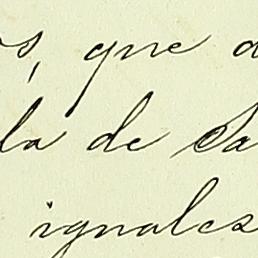 s, que
la de Sa
iguales